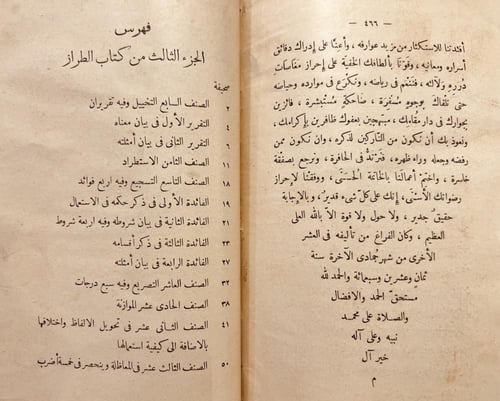 — ٤٦٦ —
أفئدتنا للاستكثار من مزيد عوارفه، وأعِنّا على إدراك دقائق
أسراره ومعانيه، وقوّنا بألطافك الخفية على إحراز مغاصات
دُرَره ولآلئه، فنتنعّم فى رياضه، ونَكْرَع فى موارده وحياضه
حتى نلقاك بوجوهٍ مُسْفِرَة، ضاحكةٍ مستبشرة، فائزين
بجوارك فى دار مقامك، مبتهجين بعفوك ظافرين بإكرامك،
ونعوذ بك أن نكون من التاركين لذكره، وأن نكون ممن
رفضه وجعله وراء ظهره، فنُرَدّ فى الحافرة، ونرجع بصفقة
خاسرة، واختم أعمالنا بالخاتمة الحسنى، ووفقنا لإحراز
رضوانك الأسنى، إنك على كلّ شىء قدير، وبالإجابة
حقيق جدير، ولا حول ولا قوة الا بالله العلى
العظيم، وكان الفراغ من تأليفه فى العشر
الأخرى من شهر جُمادى الآخرة سنة
ثمان وعشرين وسبعمائة والحمد لله
مستحقّ الحمد والافضال
والصلاة على محمد
نبيه وعلى آله
خير آل
م
فهرس
الجزء الثالث من كتاب الطراز
صحيفة
٢ الصنف السابع التخييل وفيه تقريران
٤ التقرير الأول فى بيان معناه
٦ التقرير الثانى فى بيان أمثلته
١١ الصنف الثامن الاستطراد
١٨ الصنف التاسع التسجيع وفيه اربع فوائد
١٩ الفائدة الأولى فى ذكر حكمه فى الاستعمال
٢١ الفائدة الثانية فى بيان شروطه وفيه اربعة شروط
٢٣ الفائدة الثالثة فى ذكر أقسامه
٢٧ الفائدة الرابعة فى بيان أمثلته
٣٢ الصنف العاشر التصريع وفيه سبع درجات
٣٨ الصنف الحادى عشر الموازنة
٤١ الصنف الثانى عشر فى تحويل الالفاظ واختلافها
بالاضافة الى كيفية استعمالها
٥٠ الصنف الثالث عشر فى المعاظلة وينحصر فى خمسة أضرب